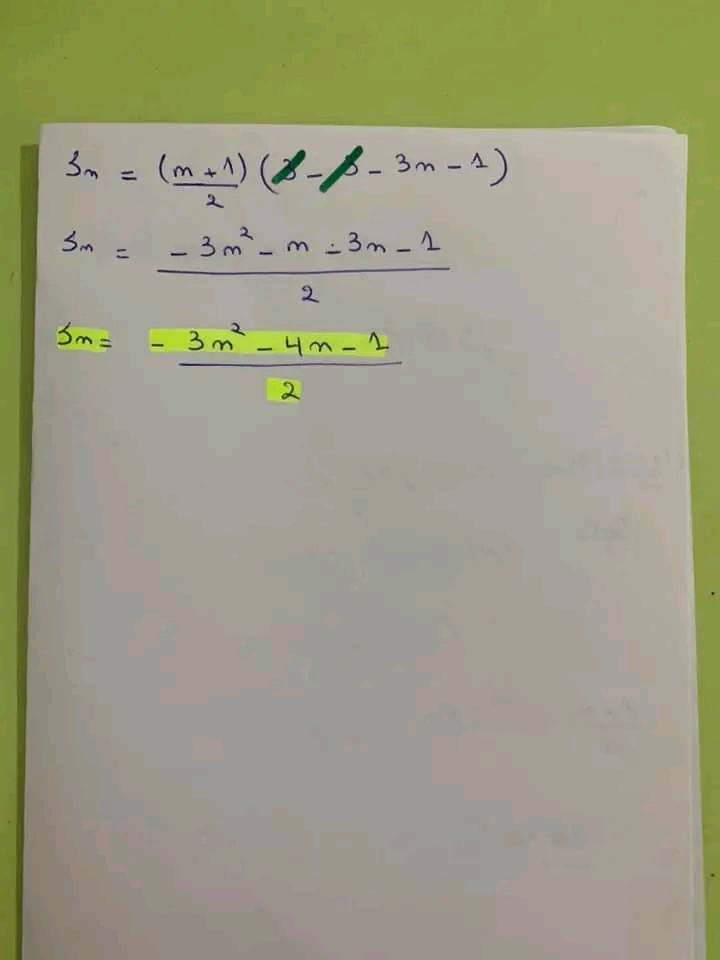 Sn = (n + 1)/2 (3 - 3 - 3n - 1)
Sn = (- 3n² - n - 3n - 1)/2
Sn = (- 3n² - 4n - 1)/2